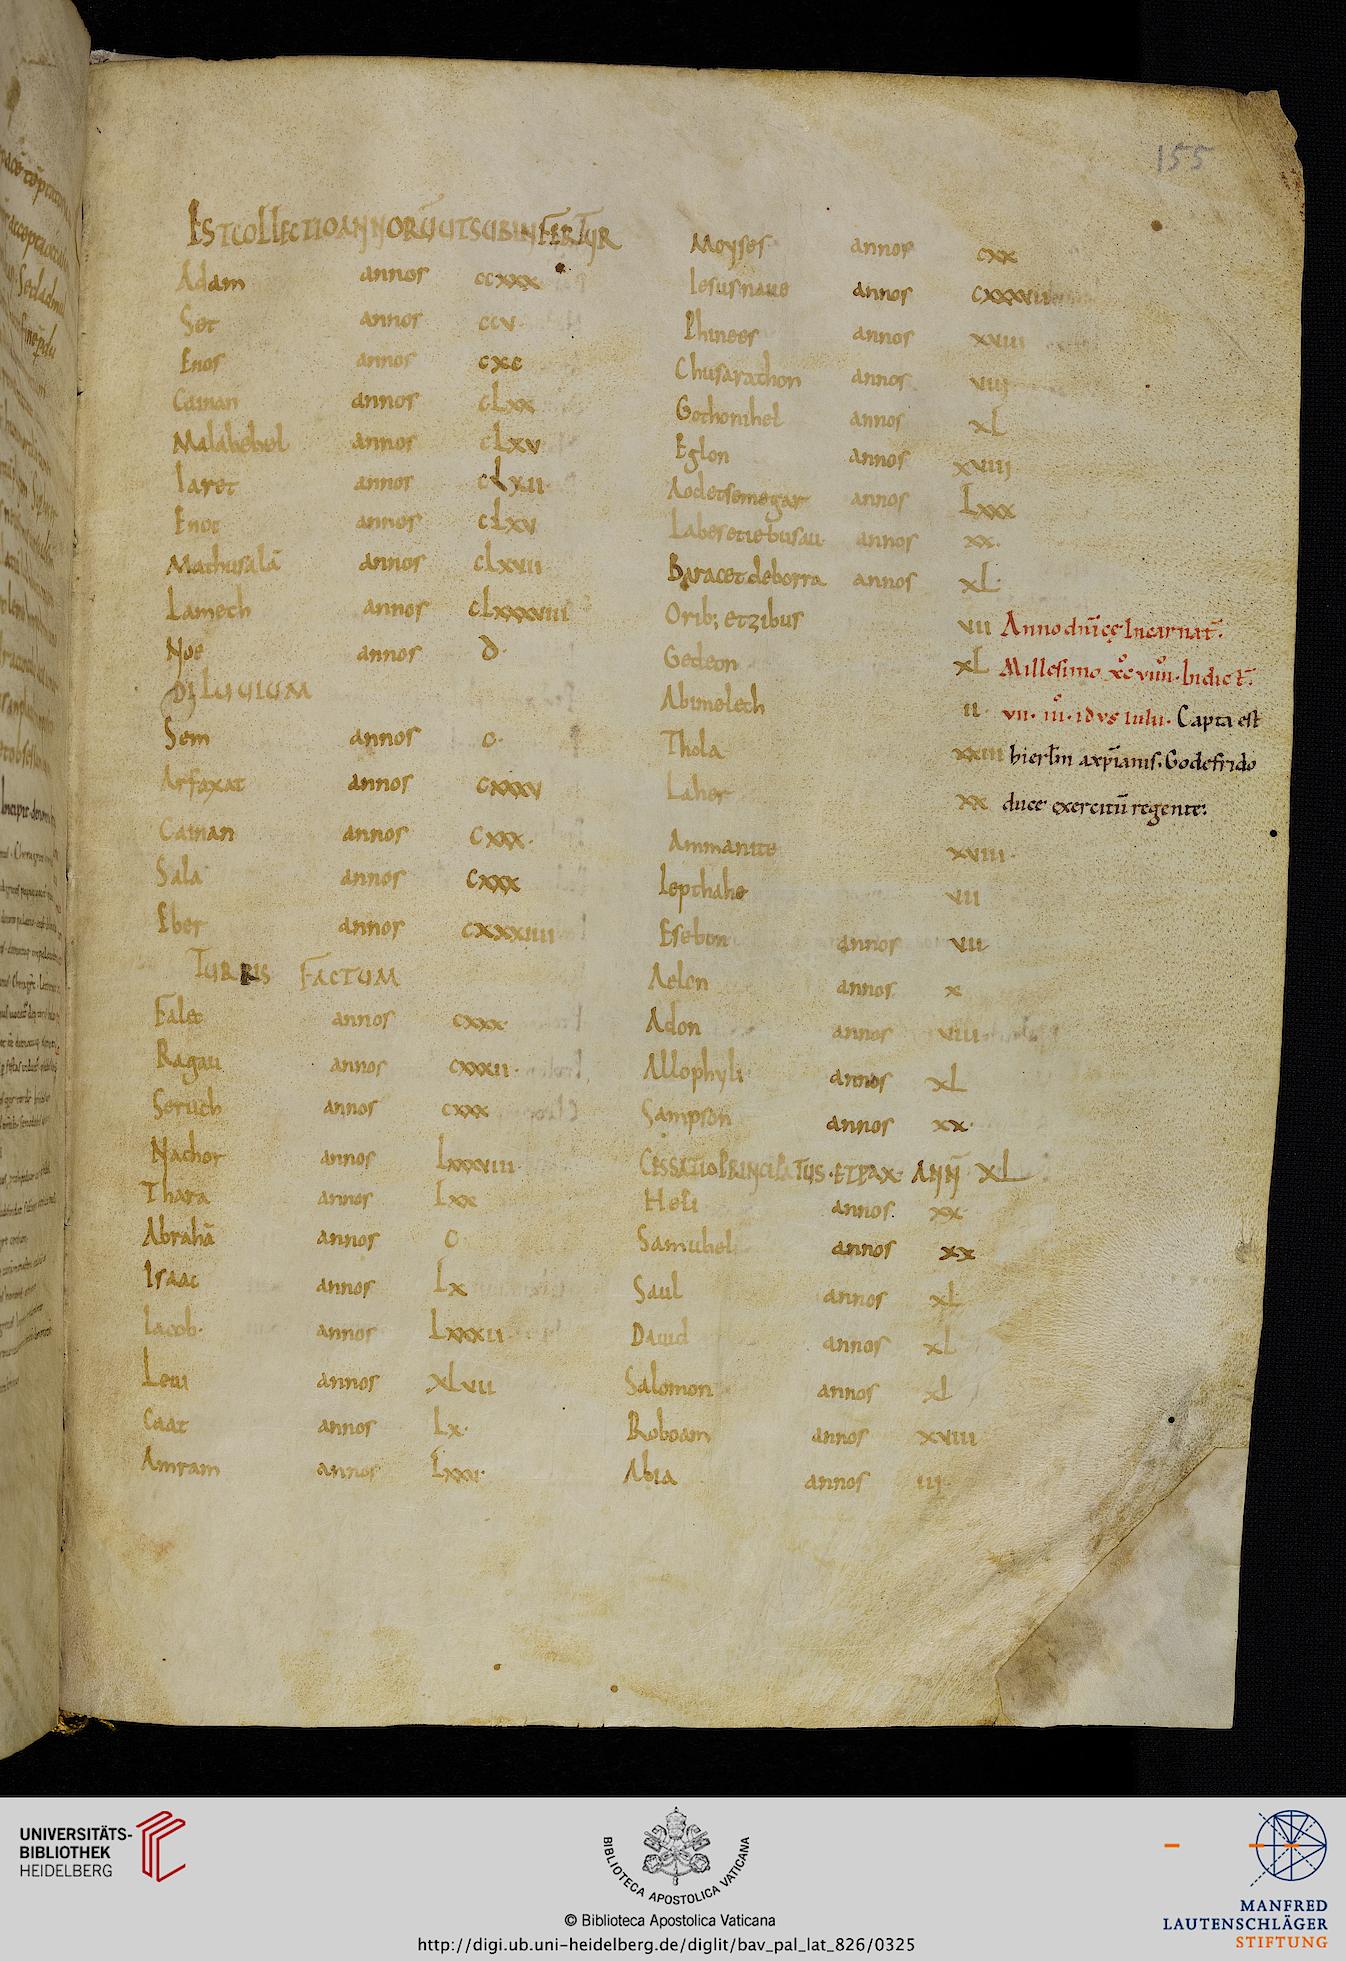 155
EST COLLECTIO ANNORŪ UT SUBINFERTUR
Adam annos ccxxx
Set annos ccv
Enos annos cxc
Cainan annos cLxx
Malalehel annos cLxv
Iaret annos cLxii
Enoc annos cLxv
Mathusalā annos cLxvii
Lamech annos cLxxxviii
Noe annos d.
DILUUIUM
Sem annos c.
Arfaxat annos cxxxv
Cainan annos cxxx.
Sala annos cxxx
Eber annos cxxxiiii
TURRIS FACTUM
Falec annos cxxx
Ragau annos cxxxii.
Seruch annos cxxx
Nachor annos Lxxxviii.
Thara annos Lxx
Abrahā annos c
Isaac annos Lx
Iacob. annos Lxxxii
Leui annos xLvii
Caat annos Lx.
Amram annos Lxxi.
Moyses annos cxx
Iesus naue annos
Phinees annos xxviii
Chusarathon annos viii
Gothonihel annos xL
Eglon annos xviii
Aod et semegar annos Lxxx
annos xx.
Barac et deborra annos xL.
Orib; et zibus vii
Gedeon xL
Abimelech ii.
Thola xxiii
Laher xx
Ammanite xviii.
Iepthahe vii
Esebon annos vii
Aelon annos x
Adon annos viii
Allophyli annos xL
Sampson annos xx.
CESSATIO PRINCIPATUS. ET PAX. ANN̄ XL
Heli annos. xx.
Samuhel annos xx
Saul annos xL
Dauid annos xL
Salomon annos xL
Roboam annos xviii
Abia annos iii.
Anno dn̄icę Incarnat̄.
Millesimo xc̊ viiii̊. Indict̄.
vii. iii̊. idvs iulii. Capta est
hierłm a xp̄ianis. Godefrido
duce exercitū regente.
UNIVERSITÄTS-
BIBLIOTHEK
HEIDELBERG
BIBLIOTECA APOSTOLICA VATICANA
© Biblioteca Apostolica Vaticana
http://digi.ub.uni-heidelberg.de/diglit/bav_pal_lat_826/0325
MANFRED
LAUTENSCHLÄGER
STIFTUNG